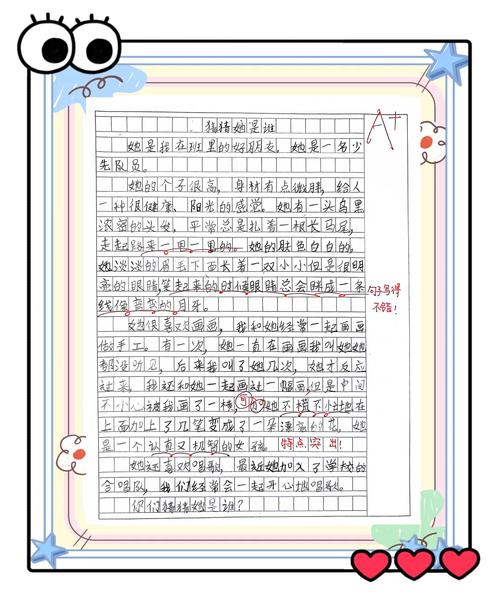 猜猜她是谁
A+
她是我在班里的好朋友。她是一名少
先队员。
她的个子很高,身材有点微胖,给人
一种很健康、阳光的感觉。她有一头乌黑
浓密的头发,平常总是扎着一根长马尾,
走起路来一甩一甩的。她的肤色白白的。
她淡淡的眉毛下面长着一双小小但是很明
亮的眼睛,笑起来的时候眼睛总会眯成一条
线像弯弯的月牙。
句子写得
不错!
她很喜欢画画,我和她经常一起画画
做手工。有一次,她一直在画画我叫她她
都没听见,后来我叫了她几次,她才反应
过来。我还和她一起画过一幅画,但是中间
不小心被我画了一横,可她不慌不忙地在
上面加上了几笔变成了一朵漂亮的花。她
是一个认真又机智的女孩。特点突出!
她还喜欢唱歌,最近她加入了学校的
合唱队,我们经常会一起开心地唱歌。
你们猜猜她是谁?